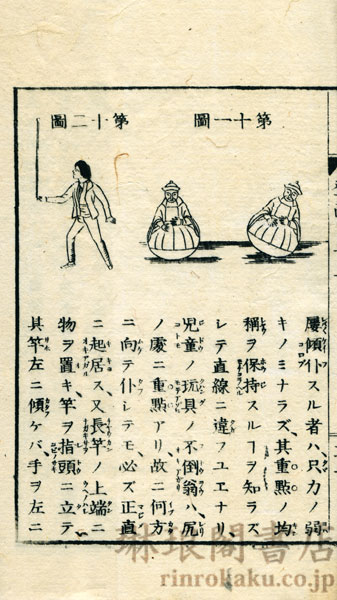 第十一圖
第十二圖
屢傾仆スル者ハ只力ノ弱
キノミナラズ、其重點ノ均
稱ヲ保持スルヿヲ知ラズ
シテ直線ニ違フユヱナリ
兒童ノ玩具ノ不倒翁ハ尻
ノ處ニ重點アリ、故ニ何方
ニ向テ仆レテモ必ズ正直
ニ起居ス、又長竿ノ上端ニ
物ヲ置キ、竿ヲ指頭ニ立テ
其竿左ニ傾ケバ、手ヲ左ニ
琳琅閣書店
rinrokaku.co.jp